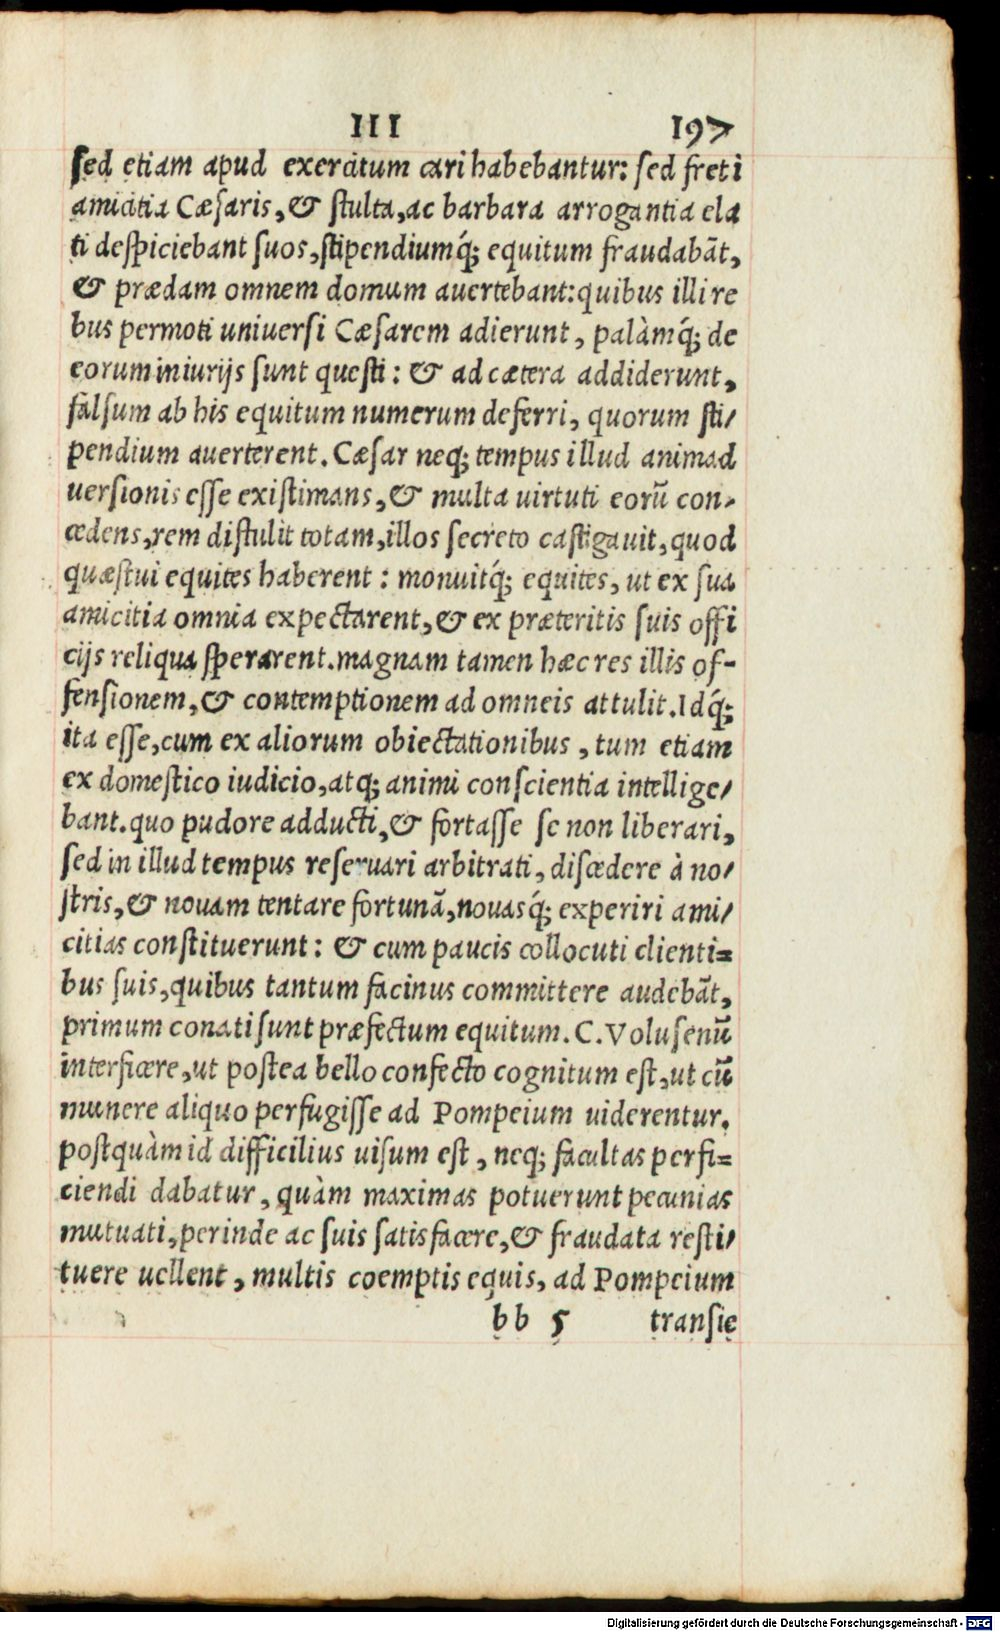 III 197
ſed etiam apud exercitum cari habebantur: ſed freti
amicitia Cæſaris, & ſtulta, ac barbara arrogantia ela
ti deſpiciebant ſuos, ſtipendiumq́; equitum fraudabāt,
& prædam omnem domum auertebant: quibus illi re
bus permoti uniuerſi Cæſarem adierunt, palàmq́; de
eorum iniurijs ſunt queſti: & ad cætera addiderunt,
falſum ab his equitum numerum deferri, quorum ſti/
pendium auerterent. Cæſar neq; tempus illud animad
uerſionis eſſe exiſtimans, & multa uirtuti eorū con-
cedens, rem diſtulit totam, illos ſecreto caſtigauit, quod
quæſtui equites haberent: monuitq́; equites, ut ex ſua
amicitia omnia expectarent, & ex præteritis ſuis offi
cijs reliqua ſperarent. magnam tamen hæc res illis of-
fenſionem, & contemptionem ad omneis attulit. Idq́;
ita eſſe, cum ex aliorum obiectationibus, tum etiam
ex domeſtico iudicio, atq; animi conſcientia intellige/
bant. quo pudore adducti, & fortaſſe ſe non liberari,
ſed in illud tempus reſeruari arbitrati, diſcedere à no/
ſtris, & nouam tentare fortunā, nouasq́; experiri ami/
citias conſtituerunt: & cum paucis collocuti clienti=
bus ſuis, quibus tantum facinus committere audebāt,
primum conati ſunt præfectum equitum. C. Voluſenū
interficere, ut poſtea bello confecto cognitum eſt, ut cū
munere aliquo perfugiſſe ad Pompeium uiderentur.
poſtquàm id difficilius uiſum eſt, neq; facultas perfi=
ciendi dabatur, quàm maximas potuerunt pecunias
mutuati, perinde ac ſuis ſatisfacere, & fraudata reſti/
tuere uellent, multis coemptis equis, ad Pompeium
bb 5 tranſie
Digitalisierung gefördert durch die Deutsche Forschungsgemeinschaft - DFG